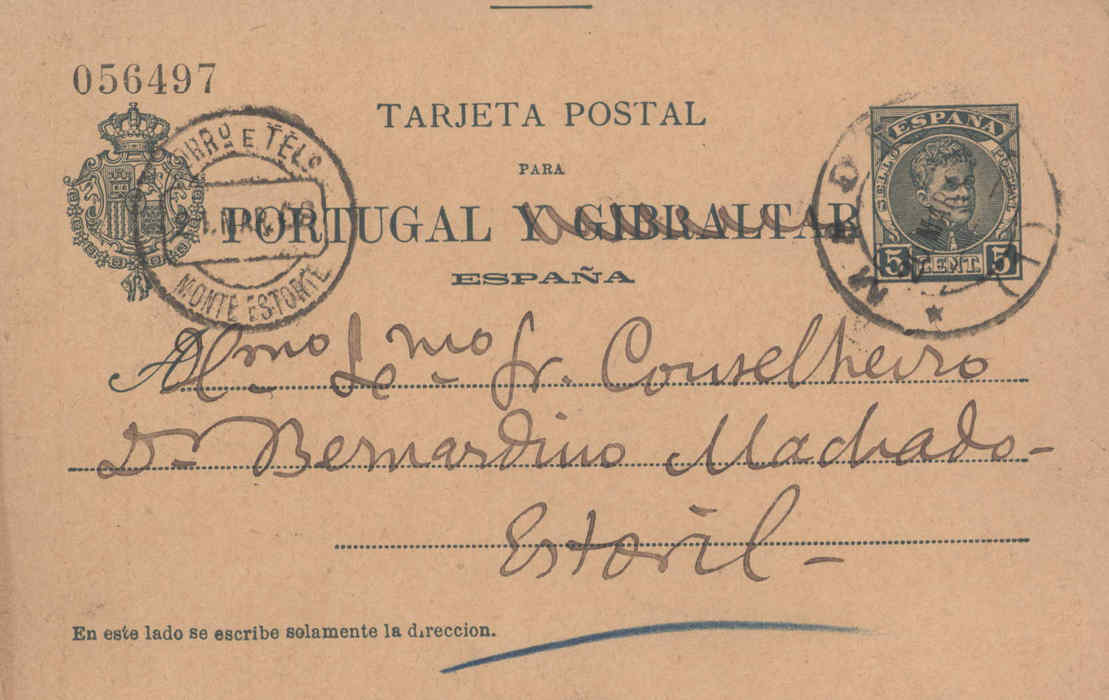 056497
TARJETA POSTAL
PARA
PORTUGAL Y GIBRALTAR
ESPAÑA
ESPAÑA
5 CENT. 5
MADRID
CORRO E TELO
MONTE ESTORIL
Illmo Exmo Sr. Conselheiro
Dr Bernardino Machado-
Estoril-
En este lado se escribe solamente la direccion.